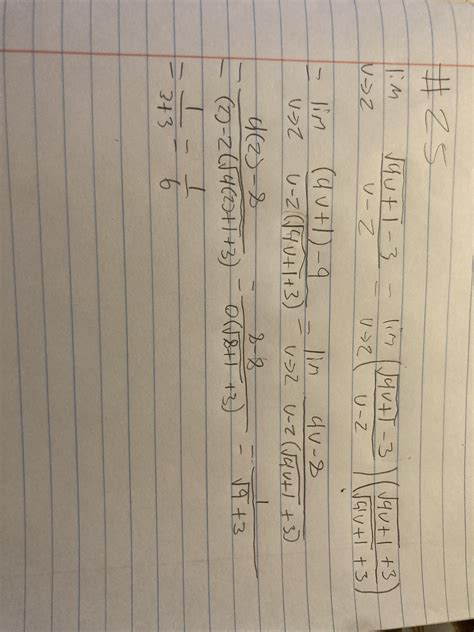 # 25
lim u→2 √(4u+1) - 3 / u-2 = lim u→2 (√(4u+1) - 3 / u-2) (√(4u+1) + 3 / √(4u+1) + 3)
= lim u→2 (4u+1) - 9 / u-2(√(4u+1) + 3) = lim u→2 4u-8 / u-2(√(4u+1) + 3)
= 4(2) - 8 / (2)-2(√(4(2)+1) + 3) = 8-8 / 0(√(8+1) + 3) = 1 / √9 + 3
= 1 / 3+3 = 1 / 6